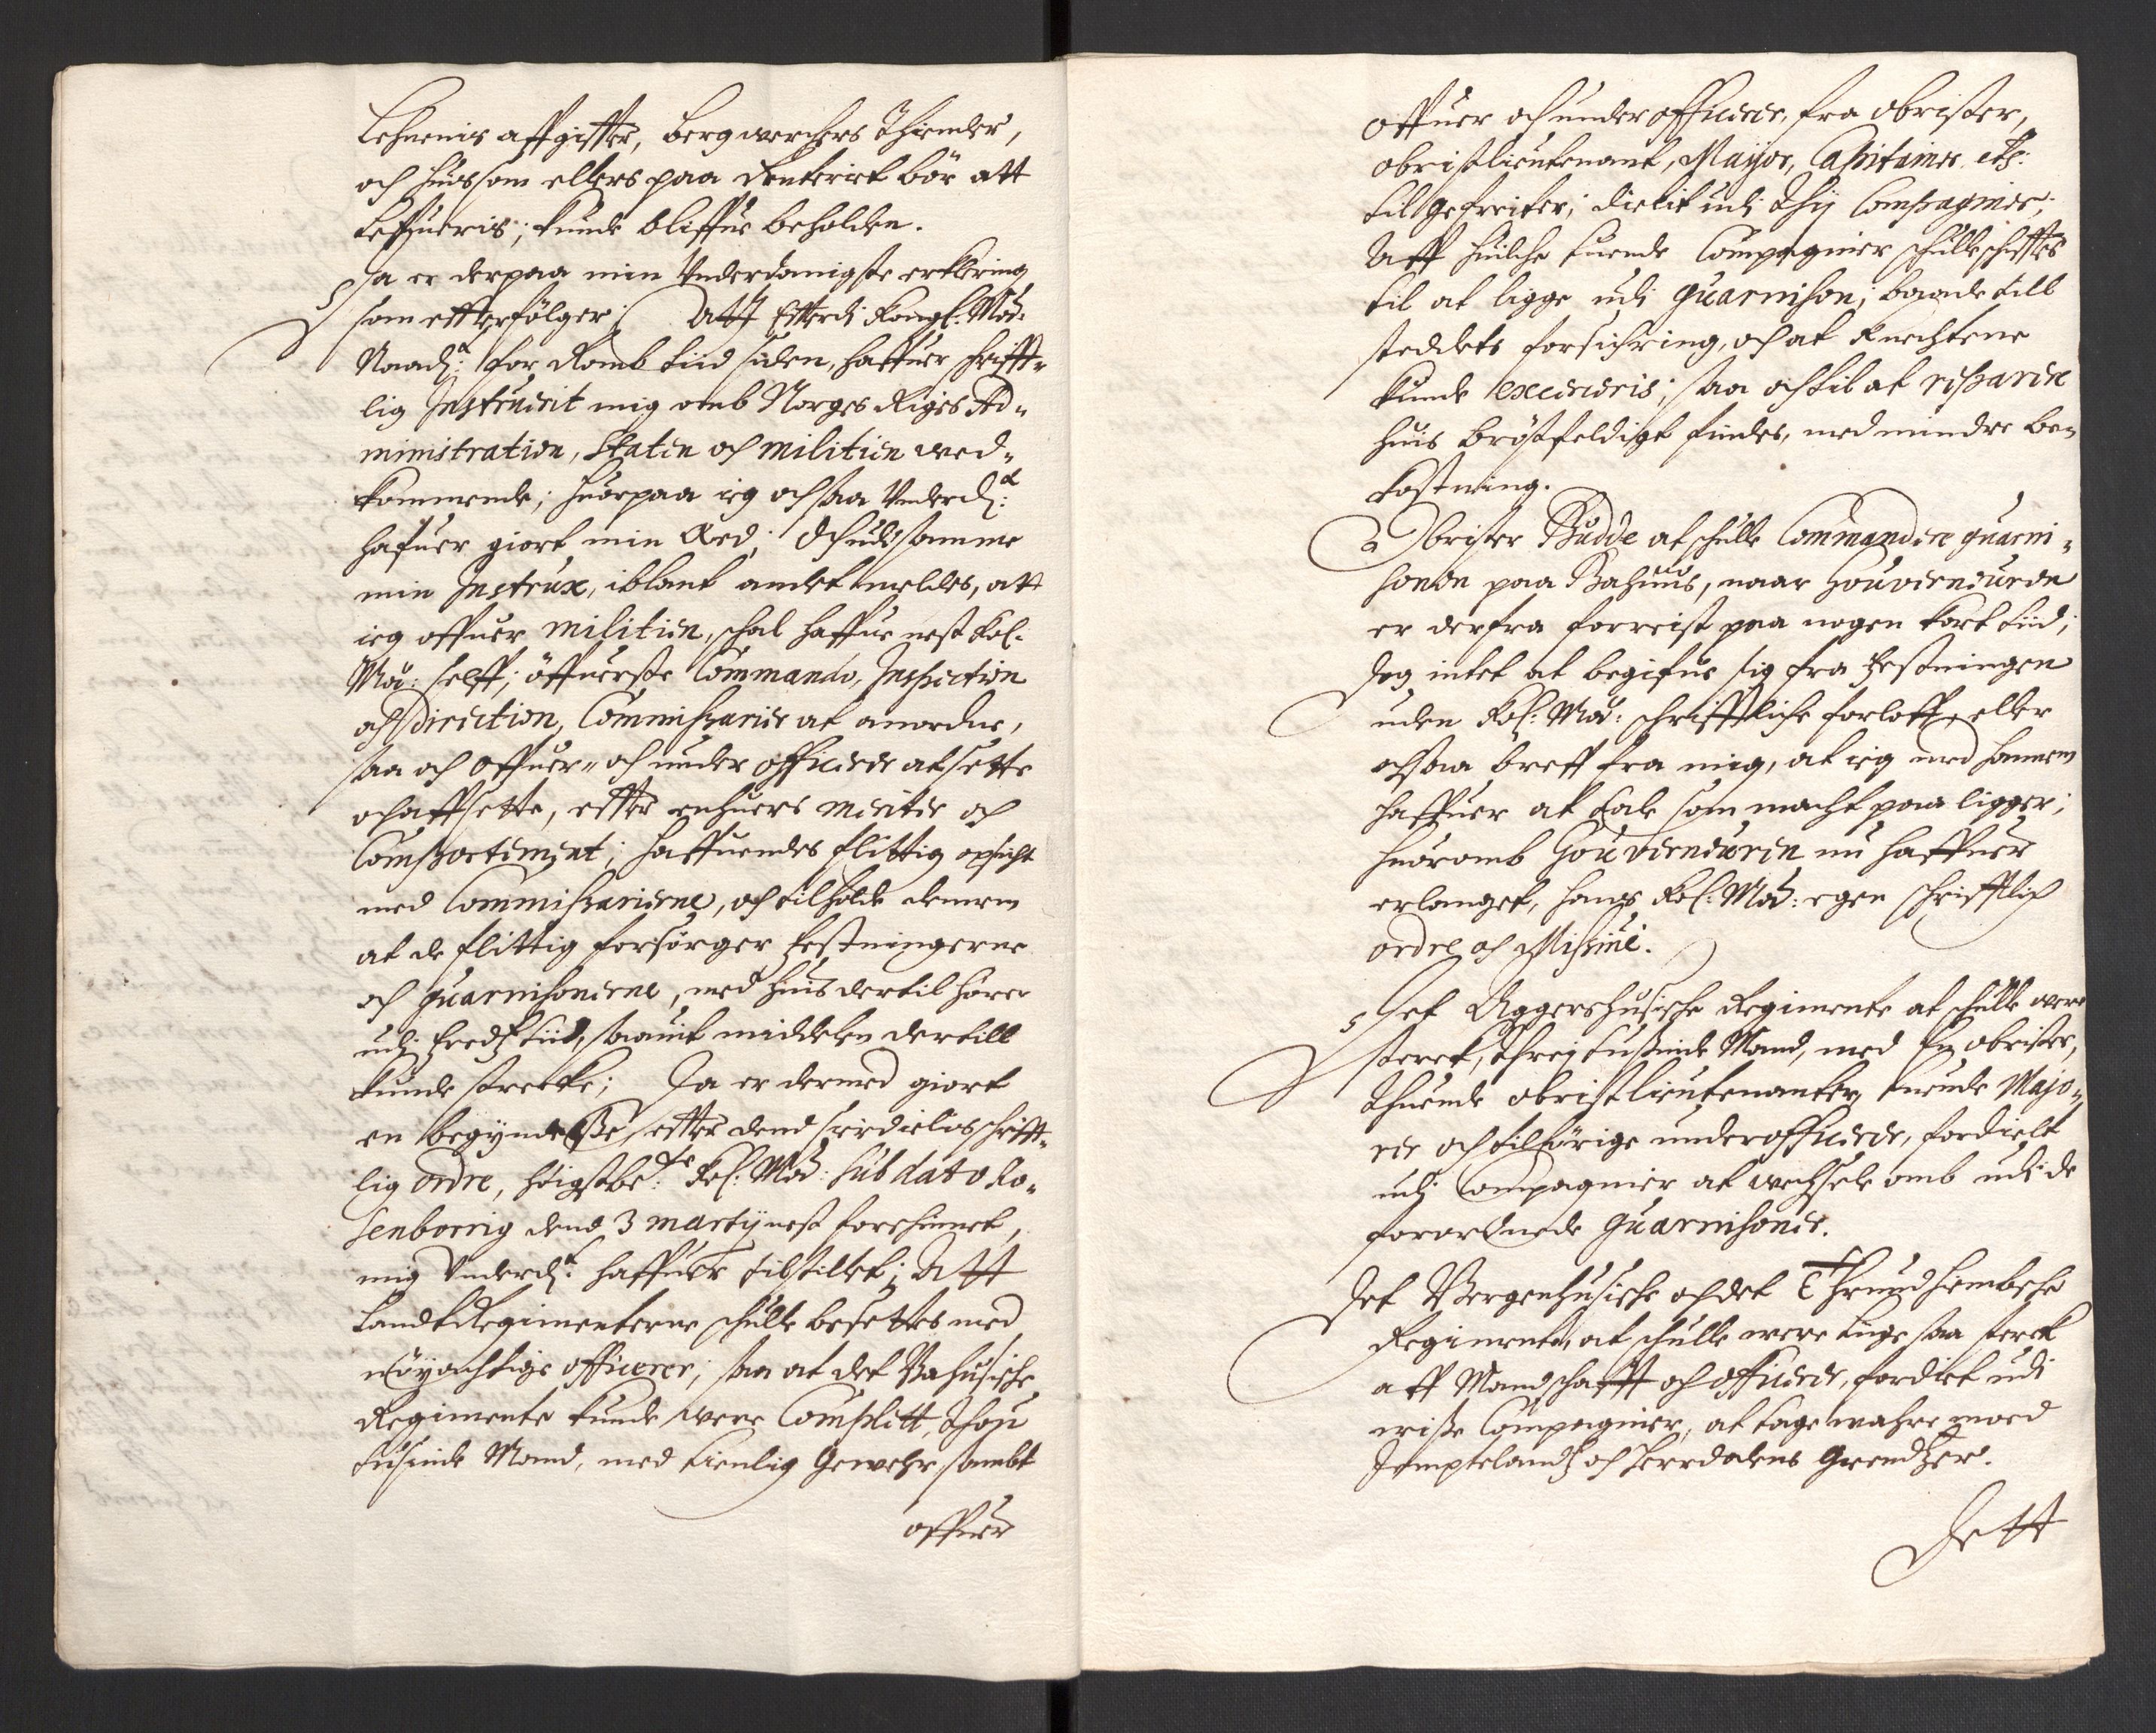 Lehnenis affgiffter, Bergwerchers Thiender,
och huis som ellers paa Renteriet bör att
lefueris; kunde bliffue beholden.
Da er derpaa min Underdanigste erklering
som effterfölger: Att Efterdi Kongl: Maÿ:
Naad: for Romb tiid siden, haffuer schrifft-
lig Instruerit mig omb Norges Riges Ad-
ministration, Staten och Militien wed-
kommende; huorpaa ieg ochsaa Underd:
hafuer giort min Æed; Och udi samme
min Instrux, iblant andet meldes, att
ieg offuer Militien, schal haffue nest Kol:
Maÿ: selff; öffuerste Commando, Inspection
och Direction, Commissarier at anordne,
saa och Offuer- och under officerer at sette
och affsette, effter enhuers meriter och
Comportement; haffuendes flittig opsicht
med Commissarierne, och tilholde dennem
at de flittig forsörger Festningerne
och Guarnisonerne, med huis dertil hörer
udi Freds tiid, saauit middelen dertill
kunde strecke; Da er dermed giort
en begyndelse, effter dend serdielis schrifft-
lig Ordre, höigstbe:te Kol: Maÿ: sub dato Ro-
senborrig dend 3 Martij nest forschinnet,
mig Underd: haffuer tilstillet; Att
Landt Regimenterne schulle besettes med
nöyachtige officerer; saa at det Bahusische
Regimente kunde were Complett, Thou
tusinde Mand, med tienlig Gewehr, sambt
offuer
Offuer och under officerer, fra Obrister,
Obristlieutenant, Mayor, Capitainer etc:
til gefreiter; dielit udi Thij Compagnier;
Aff huilche tuende Compagnier schulle schifftes
til at ligge udi Guarnison; baade till
steddets forsichring, och at Knechtene
kunde exerceris; saa och til at reparere
huis bröstfeldigt findes, med mindre be-
kostning.
Obrister Budde at schulle Commandere Guarni-
sonen paa Bahuus, naar Gouverneuren
er derfra forreist paa nogen kort tiid;
Dog intet at begifue sig fra Festningen
uden Kol: Maÿ: schrifftliche forloff, eller
ochsaa breff fra mig, at ieg med hannem
haffuer at tale som macht paa ligger;
huoromb Gouverneuren nu haffuer
erlanget, hans Kol: Maÿ: egen schrifftlig
ordre och Missive.
Det Aggershusische Regimente at schulle were
sterck, Threj tusinde Mand, med En obrister,
Thuende obristlieutenanter, tuende Majo-
rer och tilhörige underofficerer, fordielt
udi Compagnier at wechsele omb udi de
forordnede Guarnisoner.
Det Bergenhusische och det Thrundhembsche
Regimente, at schulle were liige saa sterck
aff Mandschafft och officerer, fordielt udi
wisse Compagnier, at tage wahre moed
Jemptelandz och Herrdalens Grendtzer.
Dett